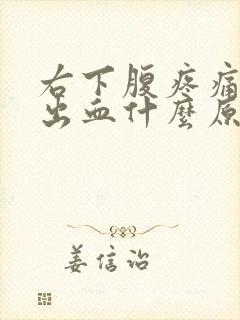 右下腹疼痛
出血什麼原
姜信治